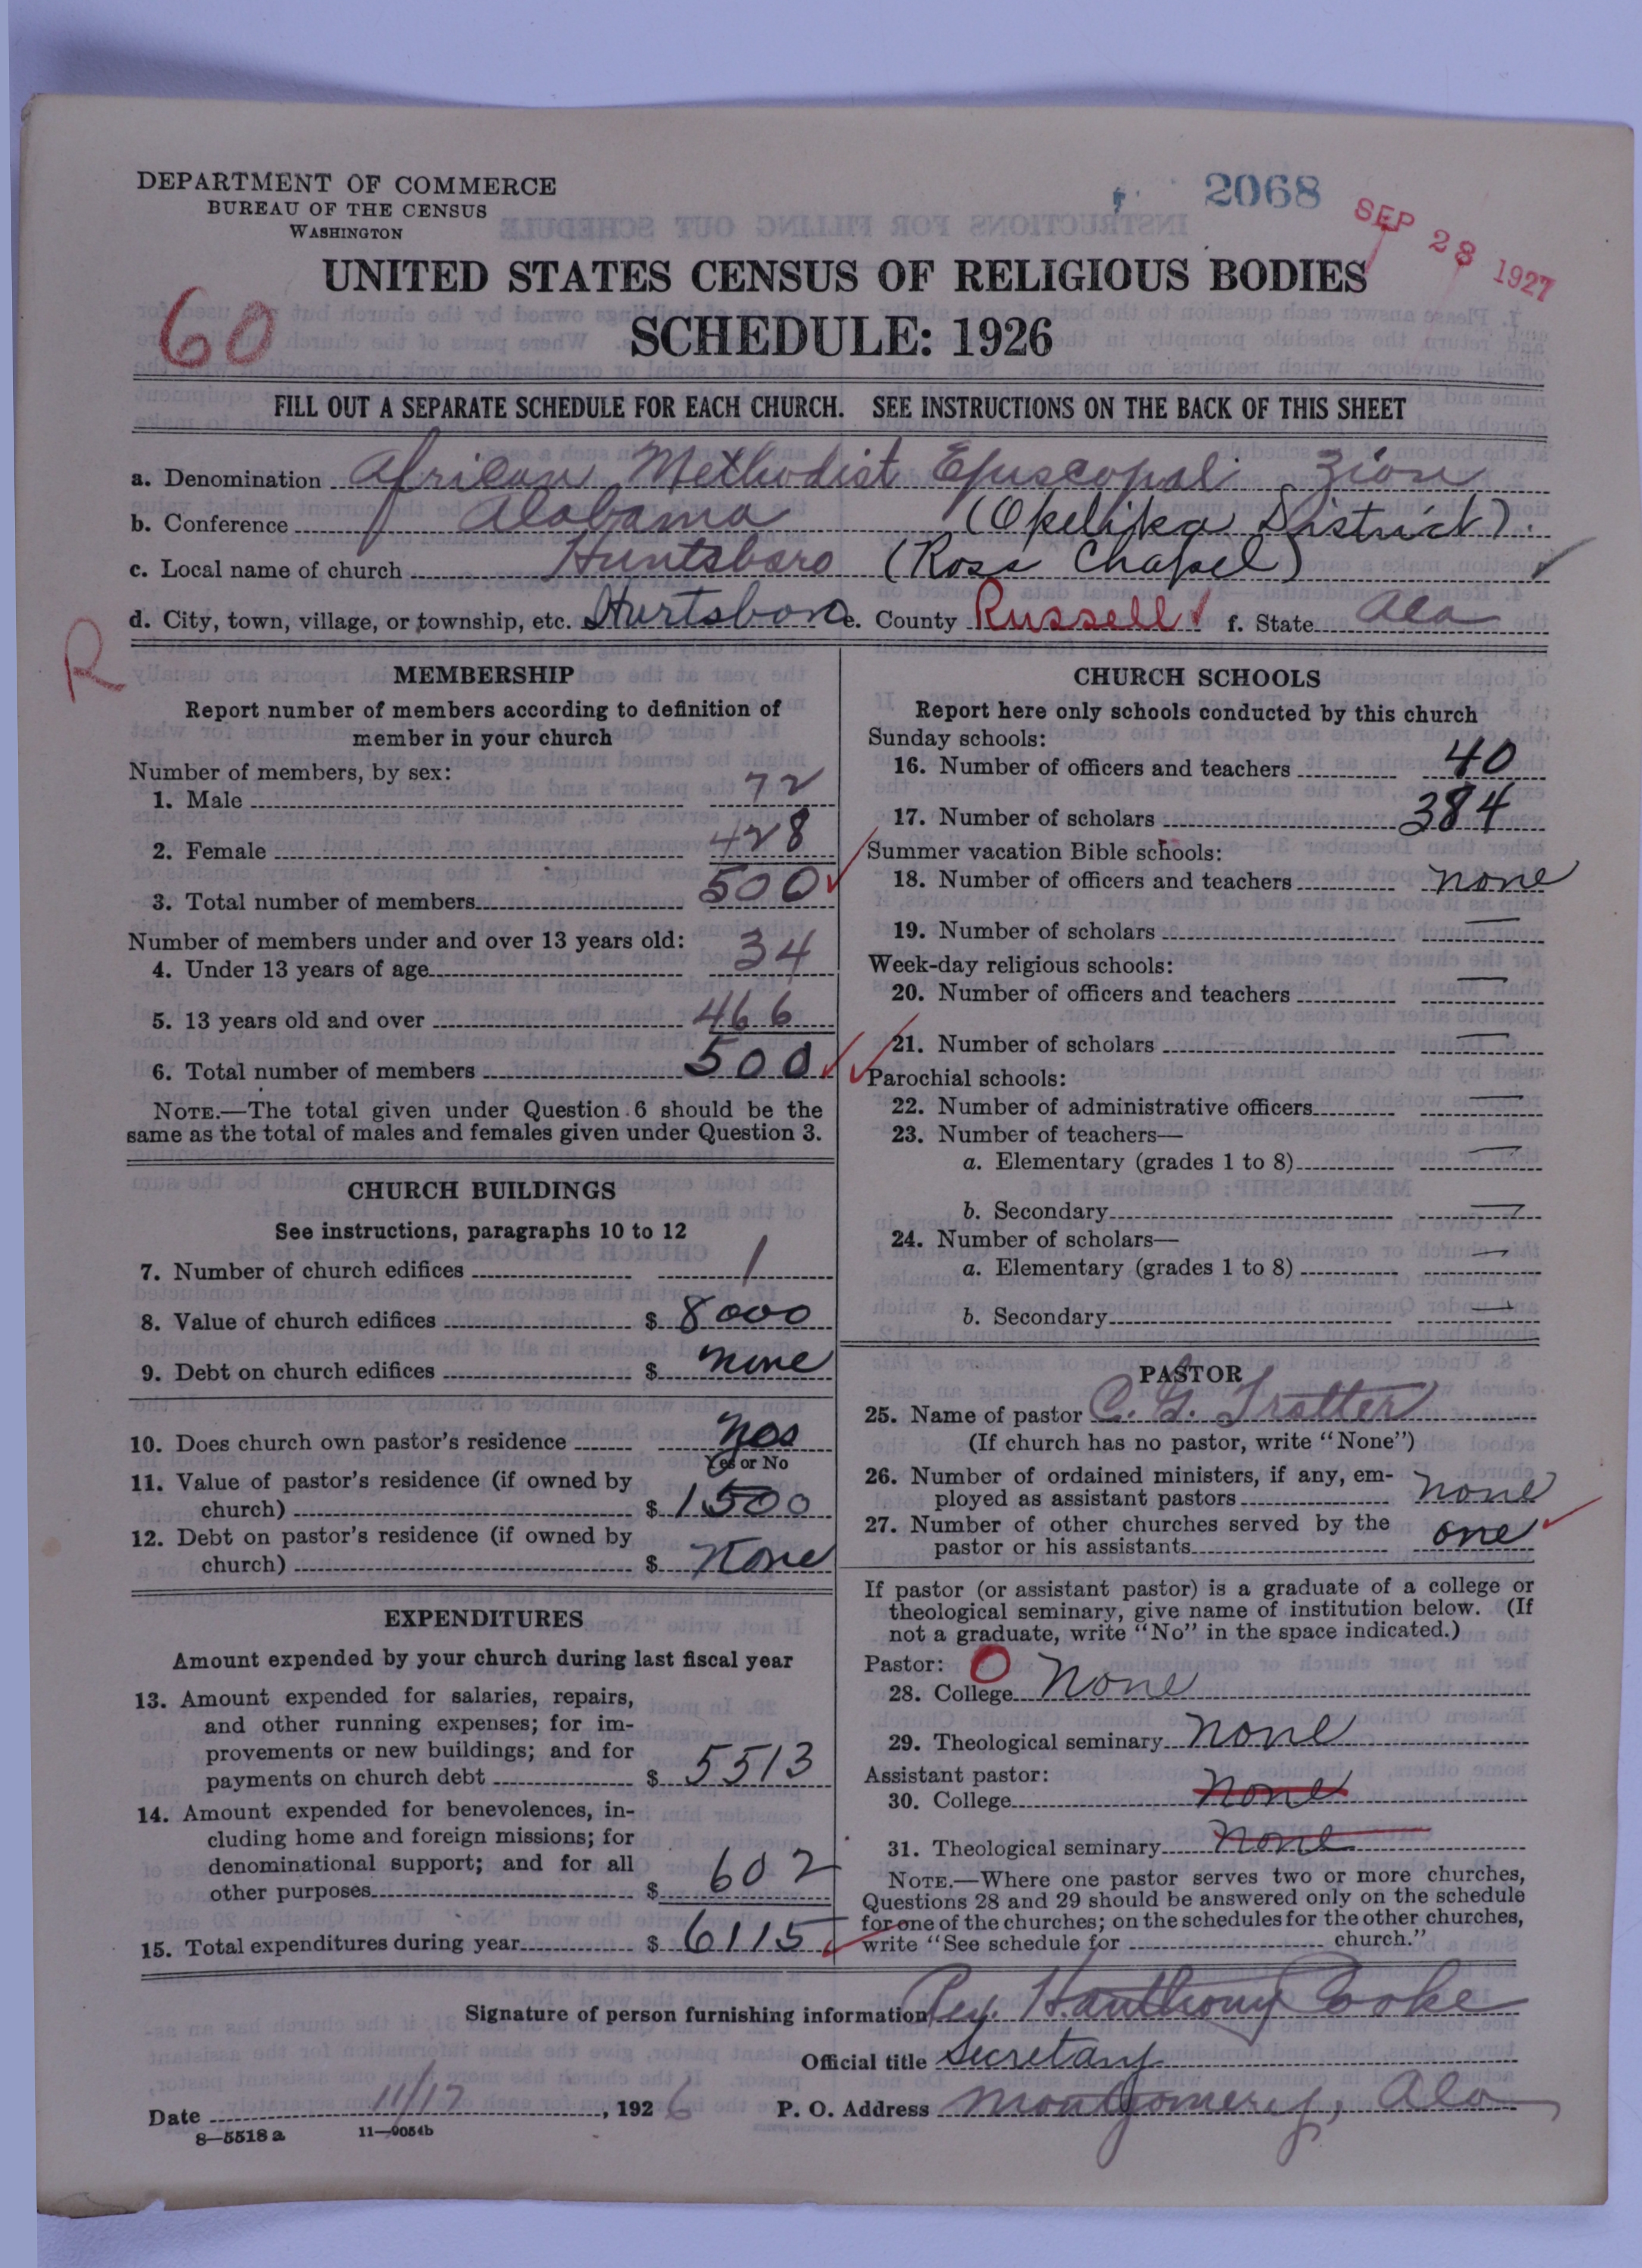 DEPARTMENT OF COMMERCE
BUREAU OF THE CENSUS
WASHINGTON
2068
SEP 28 1927
UNITED STATES CENSUS OF RELIGIOUS BODIES
SCHEDULE: 1926
60
FILL OUT A SEPARATE SCHEDULE FOR EACH CHURCH. SEE INSTRUCTIONS ON THE BACK OF THIS SHEET
a. Denomination African Methodist Episcopal Zion
b. Conference Alabama (Opelika District)
c. Local name of church Huntsboro (Ross Chapel)
d. City, town, village, or township, etc. Hurtsboro e. County Russell f. State Ala
R
MEMBERSHIP
Report number of members according to definition of
member in your church
Number of members, by sex:
1. Male 72
2. Female 428
3. Total number of members 500
Number of members under and over 13 years old:
4. Under 13 years of age 34
5. 13 years old and over 466
6. Total number of members 500
NOTE.—The total given under Question 6 should be the
same as the total of males and females given under Question 3.
CHURCH BUILDINGS
See instructions, paragraphs 10 to 12
7. Number of church edifices 1
8. Value of church edifices $ 8000
9. Debt on church edifices $ none
10. Does church own pastor's residence yes
Yes or No
11. Value of pastor's residence (if owned by
church) $ 1500
12. Debt on pastor's residence (if owned by
church) $ none
EXPENDITURES
Amount expended by your church during last fiscal year
13. Amount expended for salaries, repairs,
and other running expenses; for im-
provements or new buildings; and for
payments on church debt $ 5513
14. Amount expended for benevolences, in-
cluding home and foreign missions; for
denominational support; and for all
other purposes $ 602
15. Total expenditures during year $ 6115
CHURCH SCHOOLS
Report here only schools conducted by this church
Sunday schools:
16. Number of officers and teachers 40
17. Number of scholars 384
Summer vacation Bible schools:
18. Number of officers and teachers none
19. Number of scholars —
Week-day religious schools:
20. Number of officers and teachers —
21. Number of scholars —
Parochial schools:
22. Number of administrative officers —
23. Number of teachers—
a. Elementary (grades 1 to 8) —
b. Secondary —
24. Number of scholars—
a. Elementary (grades 1 to 8) —
b. Secondary —
PASTOR
25. Name of pastor C. G. Trotter
(If church has no pastor, write "None")
26. Number of ordained ministers, if any, em-
ployed as assistant pastors none
27. Number of other churches served by the
pastor or his assistants one
If pastor (or assistant pastor) is a graduate of a college or
theological seminary, give name of institution below. (If
not a graduate, write "No" in the space indicated.)
Pastor: O
28. College None
29. Theological seminary none
Assistant pastor:
30. College none
31. Theological seminary none
NOTE.—Where one pastor serves two or more churches,
Questions 28 and 29 should be answered only on the schedule
for one of the churches; on the schedules for the other churches,
write "See schedule for church."
Signature of person furnishing information Rev. H. Anthony Cooke
Official title Secretary
Date 11/17, 1926 P. O. Address Montgomery, Ala
8—5518 a 11—9054b